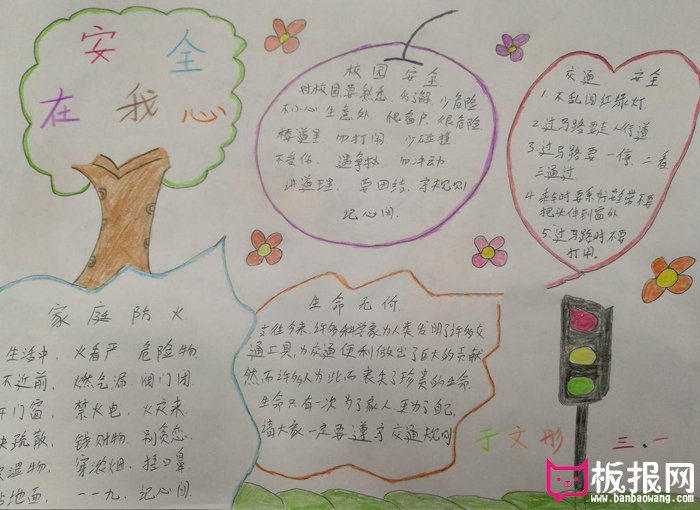 安全
在我心
校园安全
对校园要熟悉 多了解 少危险
不小心 生意外 爬窗户 很危险
楼道里 勿打闹 少碰撞
不落伤 遇争执 勿冲动
讲道理 要团结 守规则
记心间
交通安全
1.不乱闯红绿灯
2.过马路要走人行道
3.过马路要一停,二看
三通过
4.乘车时要系好安全带不要
把头伸到窗外
5.过马路时不要
打闹。
家庭防火
生活中,火看严 危险物
不近前,燃气漏 闭门闭
门窗,禁火电,火灾来
疏散,钱财物,别贪恋
湿物,穿浓烟,捂口鼻
地面,一一九,记心间
生命无价
古往今来,许多科学家为人类发明了许多交
通工具,为交通便利做出了巨大的贡献
然而许多人为此而丧失了珍贵的生命
生命只有一次 为了家人 更为了自己
请大家一定要遵守交通规则
于文彤 三.一
板报网
www.banbaowang.com